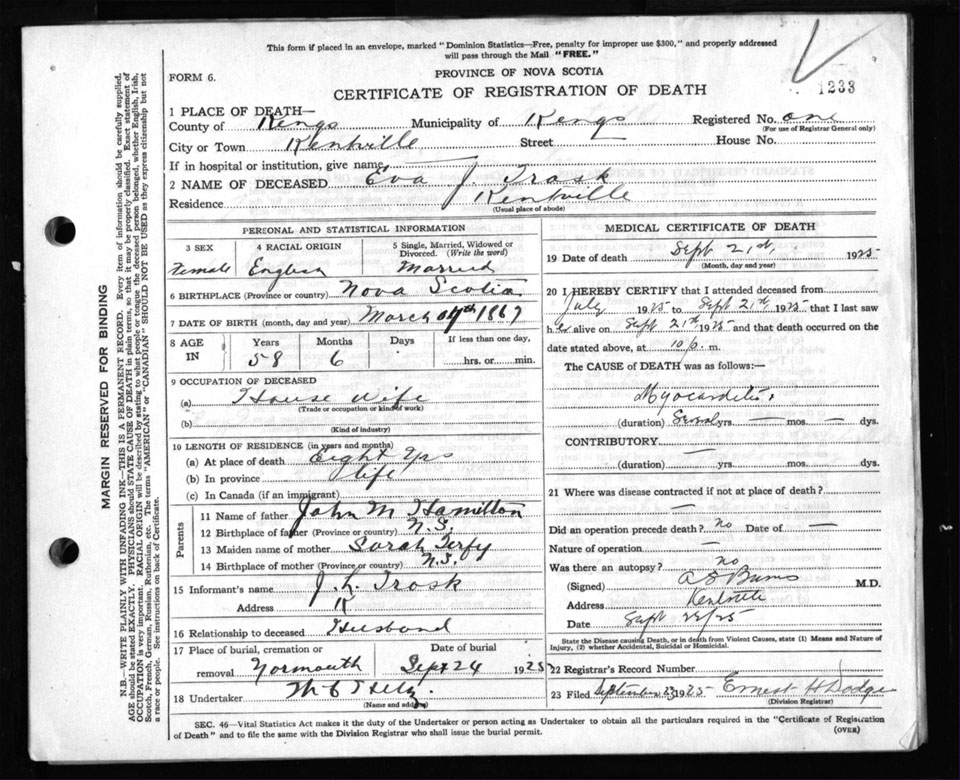 This form if placed in an envelope, marked "Dominion Statistics—Free, penalty for improper use $300," and properly addressed
will pass through the Mail "FREE."
FORM 6.
PROVINCE OF NOVA SCOTIA
1233
CERTIFICATE OF REGISTRATION OF DEATH
1 PLACE OF DEATH—
County of Kings Municipality of Kings Registered No. one
(For use of Registrar General only)
City or Town Kentville Street House No.
If in hospital or institution, give name
2 NAME OF DECEASED Eva J. Trask
Residence Kentville
(Usual place of abode)
PERSONAL AND STATISTICAL INFORMATION
3 SEX 4 RACIAL ORIGIN 5 Single, Married, Widowed or Divorced. (Write the word)
Female English Married
6 BIRTHPLACE (Province or country) Nova Scotia
7 DATE OF BIRTH (month, day and year) March 1867
8 AGE IN Years Months Days If less than one day,
58 6 hrs. or min.
9 OCCUPATION OF DECEASED
(a) House Wife
(Trade or occupation or kind of work)
(b)
(Kind of industry)
10 LENGTH OF RESIDENCE (in years and months)
(a) At place of death Eight yrs
(b) In province life
(c) In Canada (if an immigrant)
Parents
11 Name of father John M Hamilton
12 Birthplace of father (Province or country) N.S.
13 Maiden name of mother Sarah
14 Birthplace of mother (Province or country) N.S.
15 Informant's name J. L. Trask
Address K
16 Relationship to deceased Husband
17 Place of burial, cremation or removal Date of burial
Yarmouth Sept 24 1925
18 Undertaker
(Name and address)
MEDICAL CERTIFICATE OF DEATH
19 Date of death Sept 21st, 1925
(Month, day and year)
20 I HEREBY CERTIFY that I attended deceased from
July 1925 to Sept 21st 1925 that I last saw
her alive on Sept 21st 1925 and that death occurred on the
date stated above, at 10 p. m.
The CAUSE of DEATH was as follows:—
Myocarditis.
(duration) Several yrs. — mos. — dys.
CONTRIBUTORY —
(duration) — yrs. — mos. — dys.
21 Where was disease contracted if not at place of death?
—
Did an operation precede death? no Date of —
Nature of operation —
Was there an autopsy? no
(Signed) M.D.
Address Kentville
Date Sept 22/25
State the Disease causing Death, or in death from Violent Causes, state (1) Means and Nature of
Injury, (2) whether Accidental, Suicidal or Homicidal.
22 Registrar's Record Number
23 Filed September 23 1925 Ernest H Dodge
(Division Registrar)
SEC. 46—Vital Statistics Act makes it the duty of the Undertaker or person acting as Undertaker to obtain all the particulars required in the "Certificate of Registration
of Death" and to file the same with the Division Registrar who shall issue the burial permit.
(OVER)
MARGIN RESERVED FOR BINDING
N.B.—WRITE PLAINLY WITH UNFADING INK—THIS IS A PERMANENT RECORD. Every item of information should be carefully supplied.
AGE should be stated EXACTLY. PHYSICIANS should STATE CAUSE OF DEATH in plain terms, so that it may be properly classified. Exact statement of
OCCUPATION is very important. RACIAL ORIGIN will be described by stating to what people or tongue the deceased person belonged, whether English, Irish,
Scotch, French, German, Russian, Ruthenian, etc. The terms "AMERICAN" or "CANADIAN" SHOULD NOT BE USED as they express citizenship but not
a race or people. See instructions on back of Certificate.